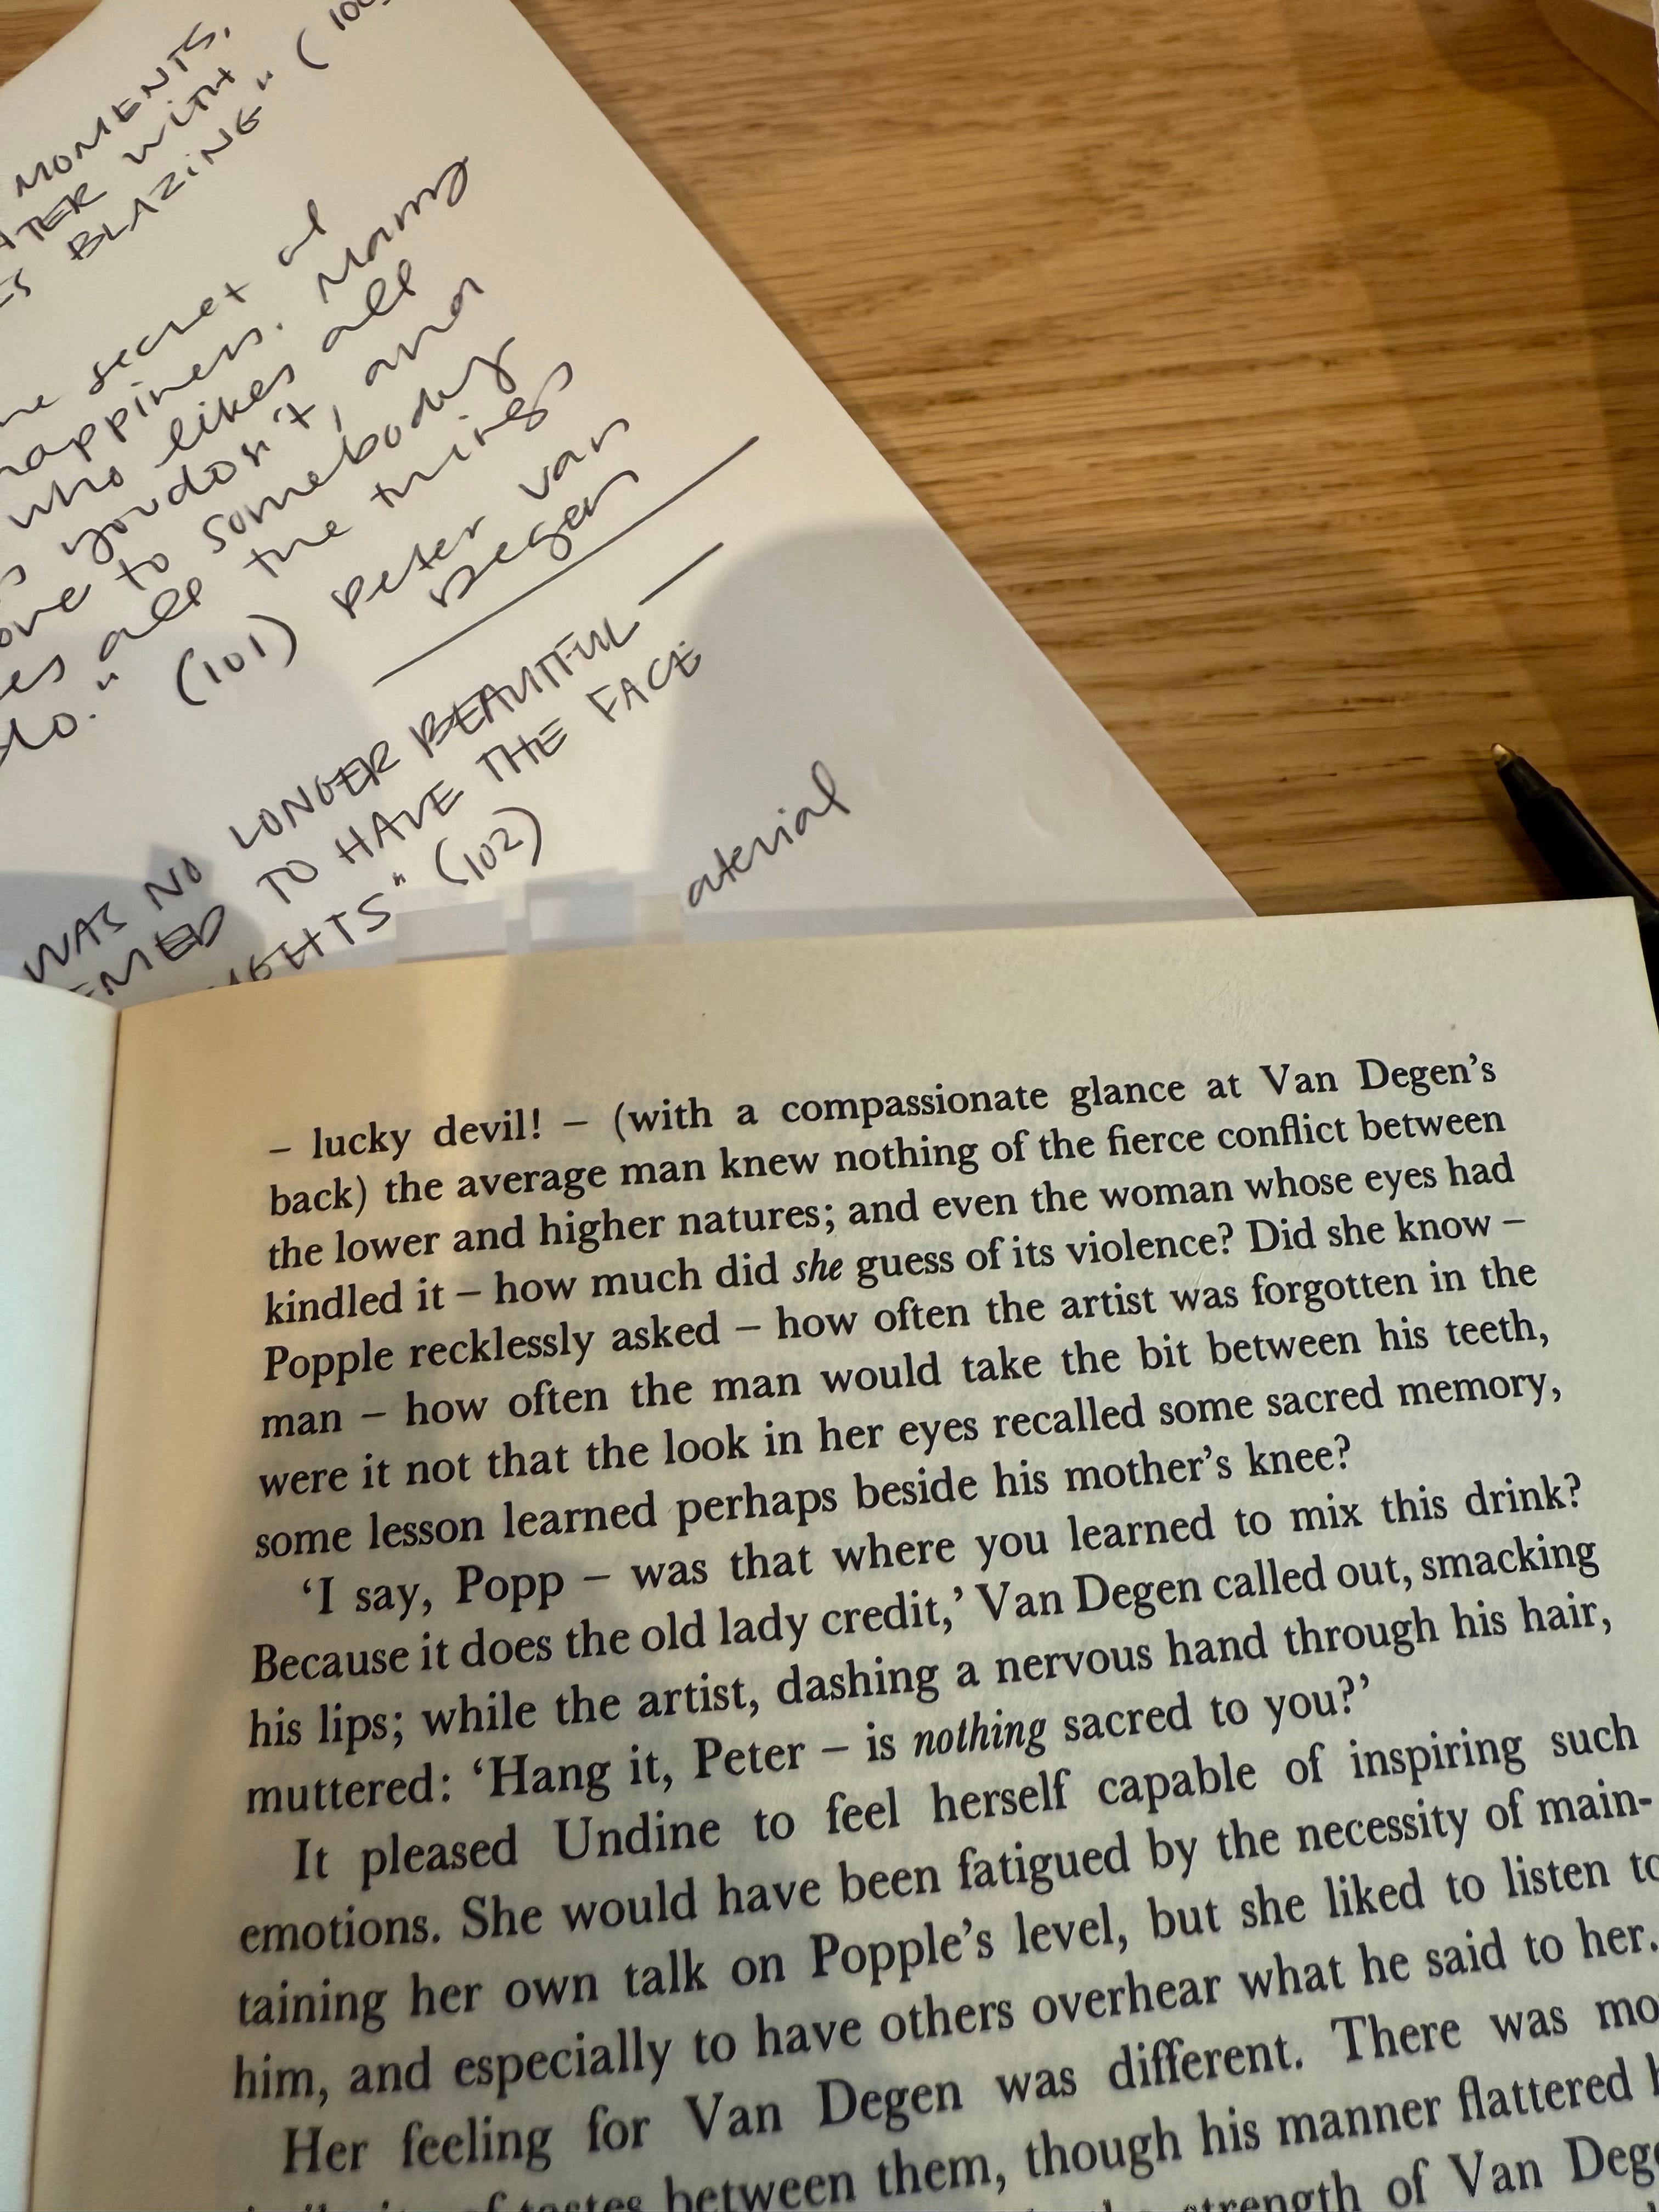 MOMENTS,
WITH
BLAZING" (
secret
happiness. Marry
who likes all
you don't, and
to somebody
all the things
do." (101) Peter Van
Degen
WAS NO LONGER BEAUTIFUL —
TO HAVE THE FACE
" (102)
aterial
– lucky devil! – (with a compassionate glance at Van Degen's
back) the average man knew nothing of the fierce conflict between
the lower and higher natures; and even the woman whose eyes had
kindled it – how much did she guess of its violence? Did she know –
Popple recklessly asked – how often the artist was forgotten in the
man – how often the man would take the bit between his teeth,
were it not that the look in her eyes recalled some sacred memory,
some lesson learned perhaps beside his mother's knee?
'I say, Popp – was that where you learned to mix this drink?
Because it does the old lady credit,' Van Degen called out, smacking
his lips; while the artist, dashing a nervous hand through his hair,
muttered: 'Hang it, Peter – is nothing sacred to you?'
It pleased Undine to feel herself capable of inspiring such
emotions. She would have been fatigued by the necessity of main-
taining her own talk on Popple's level, but she liked to listen to
him, and especially to have others overhear what he said to her.
Her feeling for Van Degen was different. There was mo
of tastes between them, though his manner flattered h
strength of Van Dege